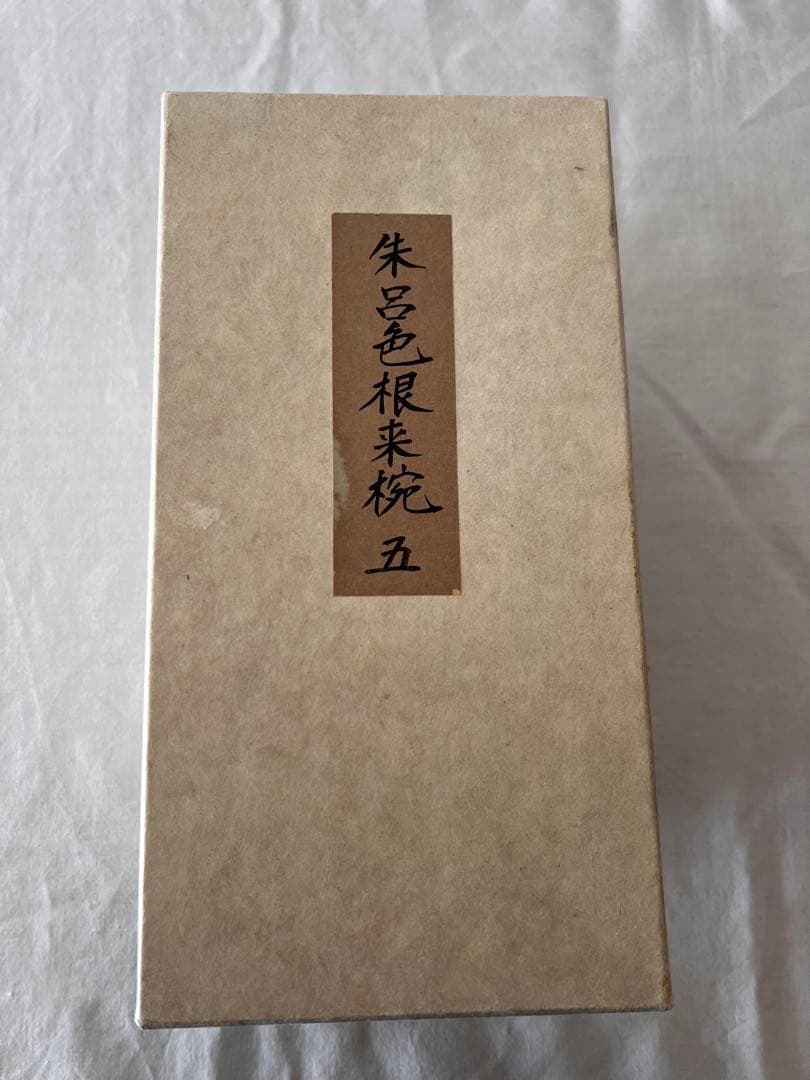 朱呂色根来椀 五